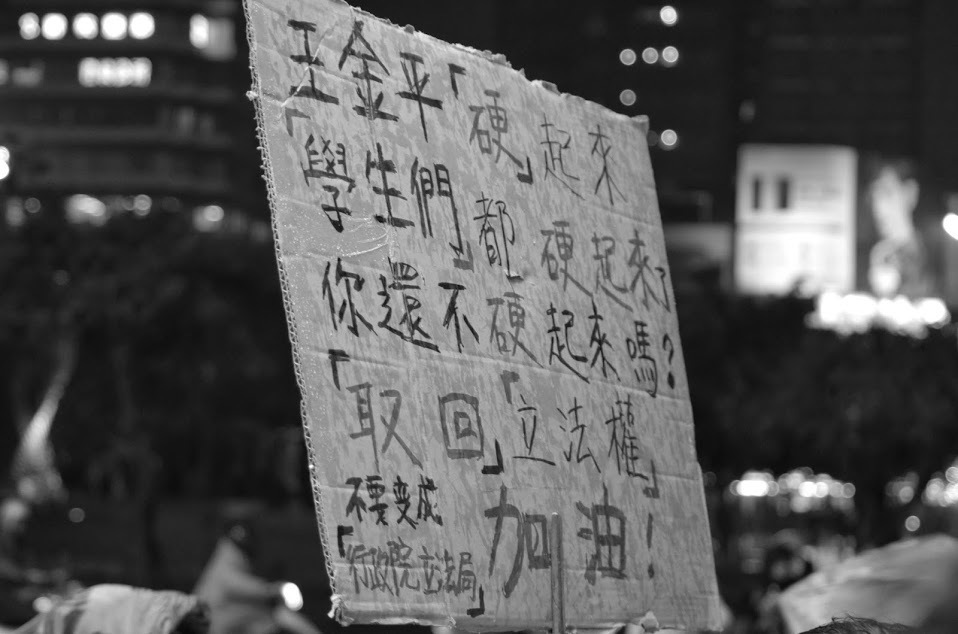 王金平「硬」起來
「學生們」都硬起來了
你還不硬起來嗎？
「取回」「立法權」
不要变成
「行政院立法局」
加油！